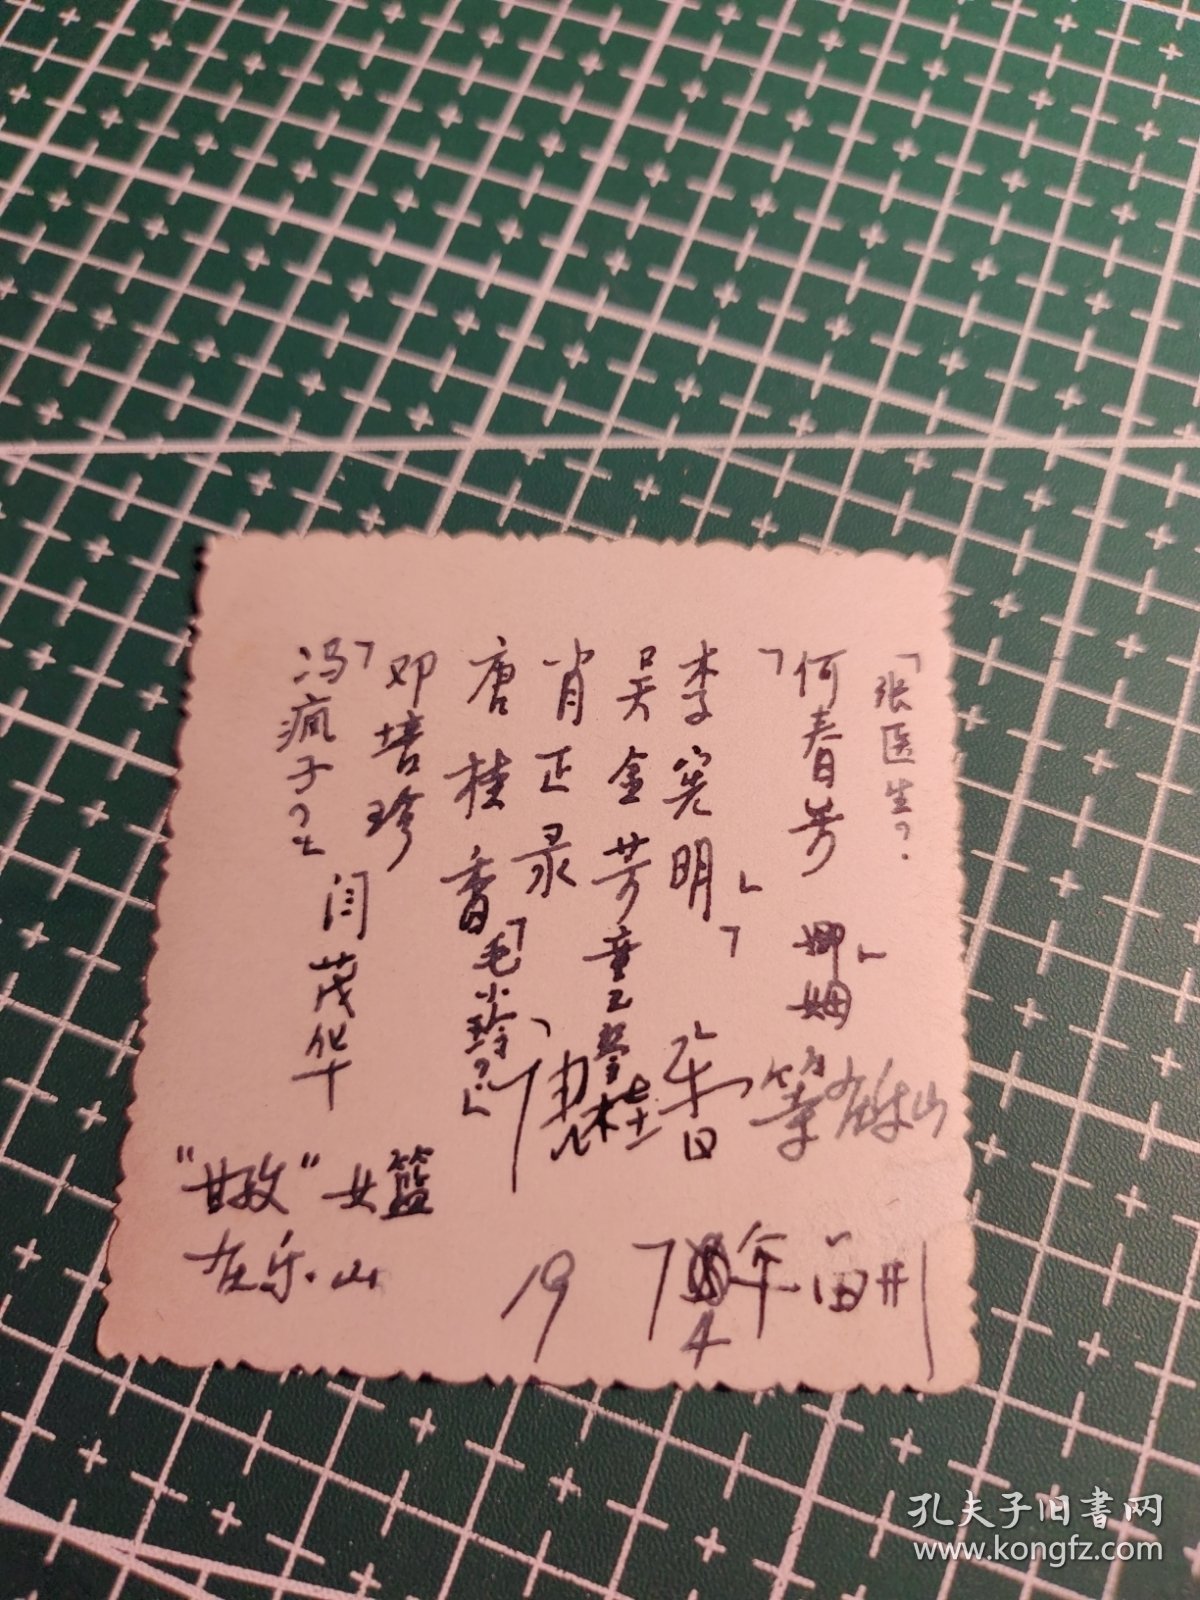 「张医生?
何春芳
娜姆
李宪明
吴金芳
肖正录
唐桂香
毛小玲?
邓培珍
冯疯子?
闫茂华
桂香等在乐山
"甘孜"女篮
在乐山
1974年
孔夫子旧書网
www.kongfz.com